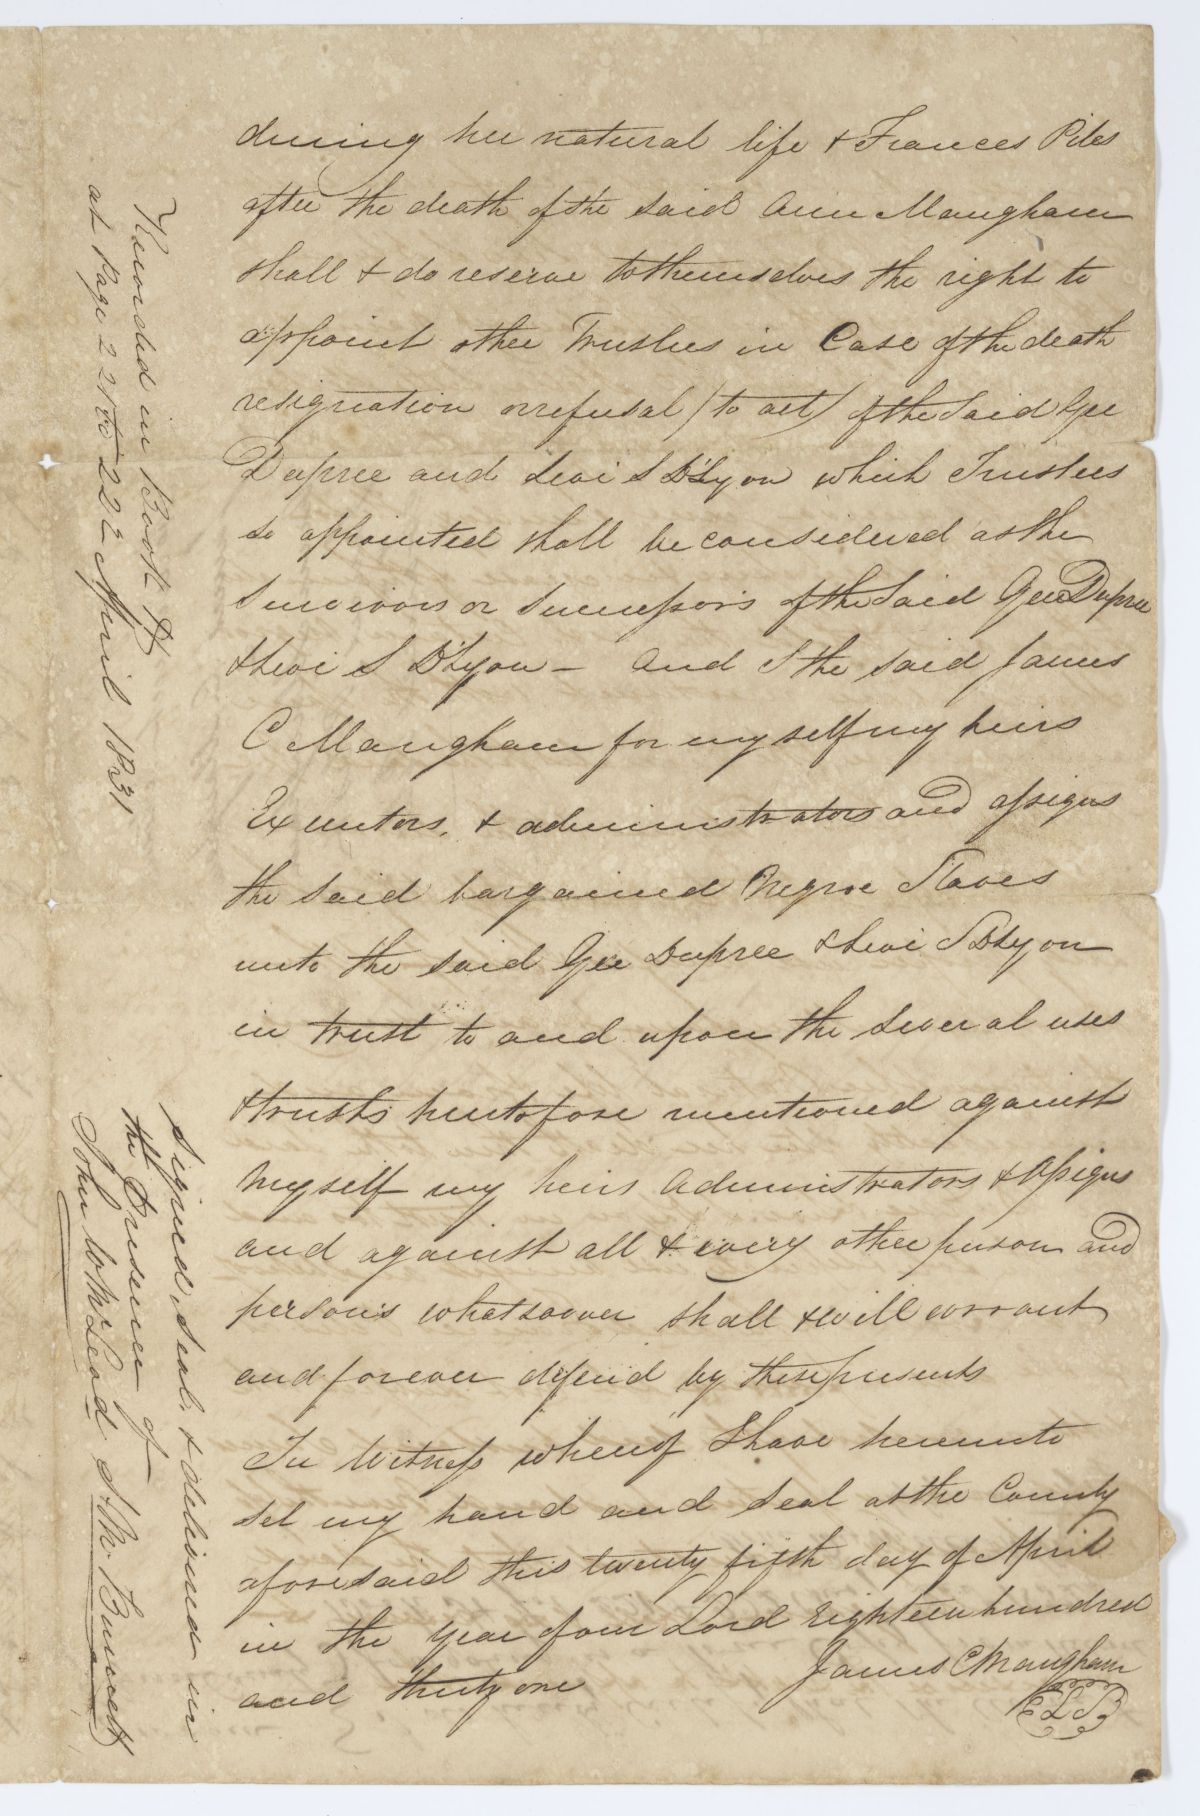 during her natural life & Frances Piles
after the death of the said Ann Mangham
shall & do reserve to themselves the right to
appoint other Trustees in Case of the death
resignation or refusal (to act) of the said Gee
Dupree and Levi S D'Lyon which Trustees
so appointed shall be considered as the
Survivors or Successors of the Said Gee Dupree
& Levi S D'Lyon — And I the said James
C Mangham for my self my heirs
Executors, & administrators and assigns
the said bargained Negroe Slaves
unto the said Gee Dupree & Levi S DLyon
in trust to and upon the several uses
& trusts heretofore mentioned against
Myself my heirs Administrators & Assigns
and against all & every other person and
persons whatsoever shall & will warrant
and forever defend by these presents
In Witness whereof I have hereunto
set my hand and seal at the County
aforesaid this twenty fifth day of April
in the year of our Lord Eighteen hundred
and thirty one
James C Mangham
LS
Recorded in Book H
at Page 221 to 222 April 1831
Signed, Seal, & delivered in
the Presence of
John W McLeod S. M. Burnett